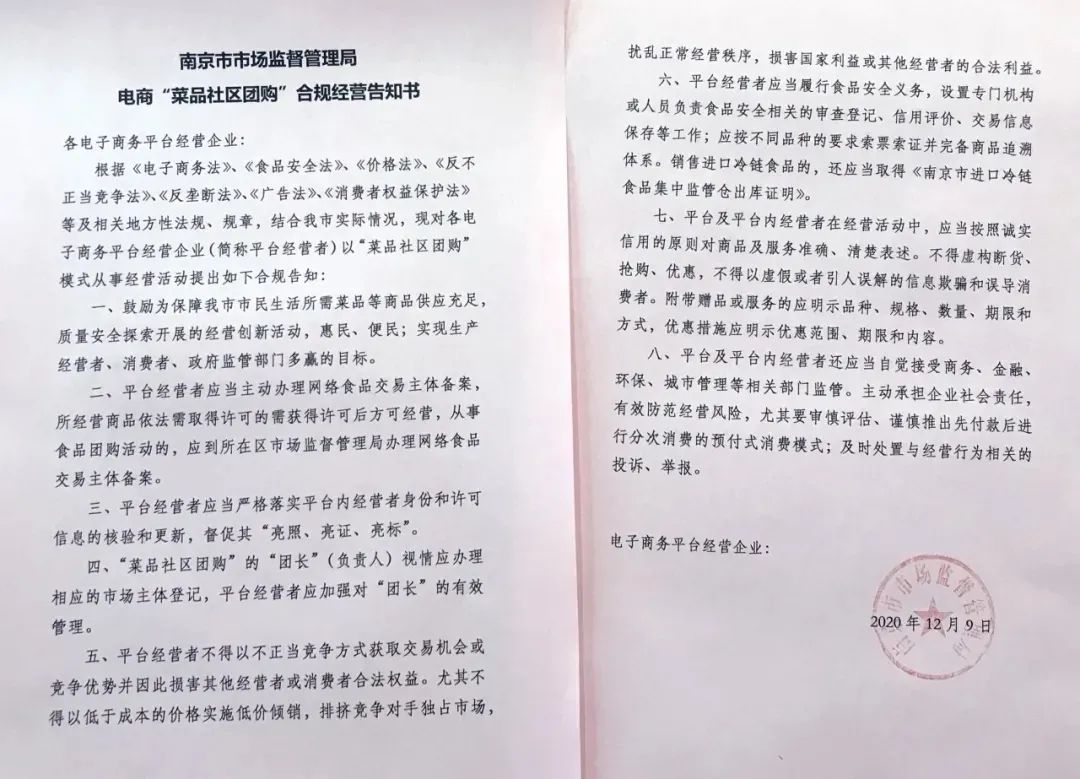 南京市市场监督管理局
电商“菜品社区团购”合规经营告知书
各电子商务平台经营企业：
根据《电子商务法》、《食品安全法》、《价格法》、《反不
正当竞争法》、《反垄断法》、《广告法》、《消费者权益保护法》
等及相关地方性法规、规章，结合我市实际情况，现对各电
子商务平台经营企业（简称平台经营者）以“菜品社区团购”
模式从事经营活动提出如下合规告知：
一、鼓励为保障我市市民生活所需菜品等商品供应充足，
质量安全探索开展的经营创新活动，惠民、便民；实现生产
经营者、消费者、政府监管部门多赢的目标。
二、平台经营者应当主动办理网络食品交易主体备案，
所经营商品依法需取得许可的需获得许可后方可经营，从事
食品团购活动的，应到所在区市场监督管理局办理网络食品
交易主体备案。
三、平台经营者应当严格落实平台内经营者身份和许可
信息的核验和更新，督促其“亮照、亮证、亮标”。
四、“菜品社区团购”的“团长”（负责人）视情应办理
相应的市场主体登记，平台经营者应加强对“团长”的有效
管理。
五、平台经营者不得以不正当竞争方式获取交易机会或
竞争优势并因此损害其他经营者或消费者合法权益。尤其不
得以低于成本的价格实施低价倾销，排挤竞争对手独占市场，
扰乱正常经营秩序，损害国家利益或其他经营者的合法利益。
六、平台经营者应当履行食品安全义务，设置专门机构
或人员负责食品安全相关的审查登记、信用评价、交易信息
保存等工作；应按不同品种的要求索票索证并完备商品追溯
体系。销售进口冷链食品的，还应当取得《南京市进口冷链
食品集中监管仓出库证明》。
七、平台及平台内经营者在经营活动中，应当按照诚实
信用的原则对商品及服务准确、清楚表述。不得虚构断货、
抢购、优惠，不得以虚假或者引人误解的信息欺骗和误导消
费者。附带赠品或服务的应明示品种、规格、数量、期限和
方式，优惠措施应明示优惠范围、期限和内容。
八、平台及平台内经营者还应当自觉接受商务、金融、
环保、城市管理等相关部门监管。主动承担企业社会责任，
有效防范经营风险，尤其要审慎评估、谨慎推出先付款后进
行分次消费的预付式消费模式；及时处置与经营行为相关的
投诉、举报。
电子商务平台经营企业：
南京市市场监督管理局
2020年12月9日